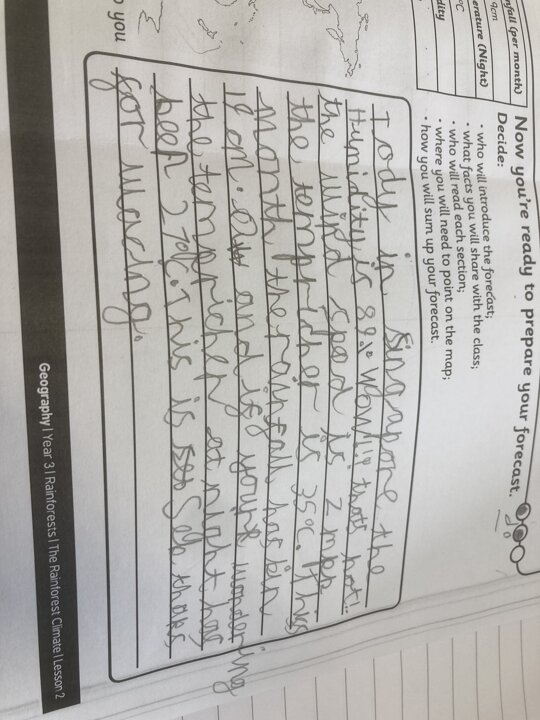 nfall (per month)
9cm
erature (Night)
°C
dity
Now you're ready to prepare your forecast.
Decide:
• who will introduce the forecast;
• what facts you will share with the class;
• who will read each section;
• where you will need to point on the map;
• how you will sum up your forecast.
Tody in singapore the
Humidity is 88% wow!!! thats hot!..
the wind spead is 2 mph
the tempricher is 35°c. this
month the rainfall has bin
19 cm. and if your wondering
the tempricher at night has
been 27°c. This is Seb thanks
for waching.
o you
Geography | Year 3 | Rainforests | The Rainforest Climate | Lesson 2